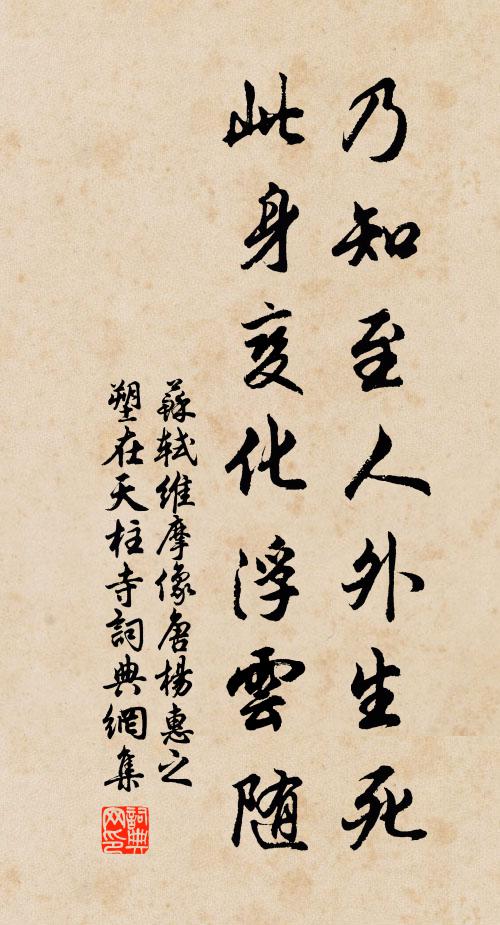 乃知至人外生死
此身变化浮雲随
蘇軾维摩像唐楊惠之
塑在天柱寺詞典網集
詞典网印